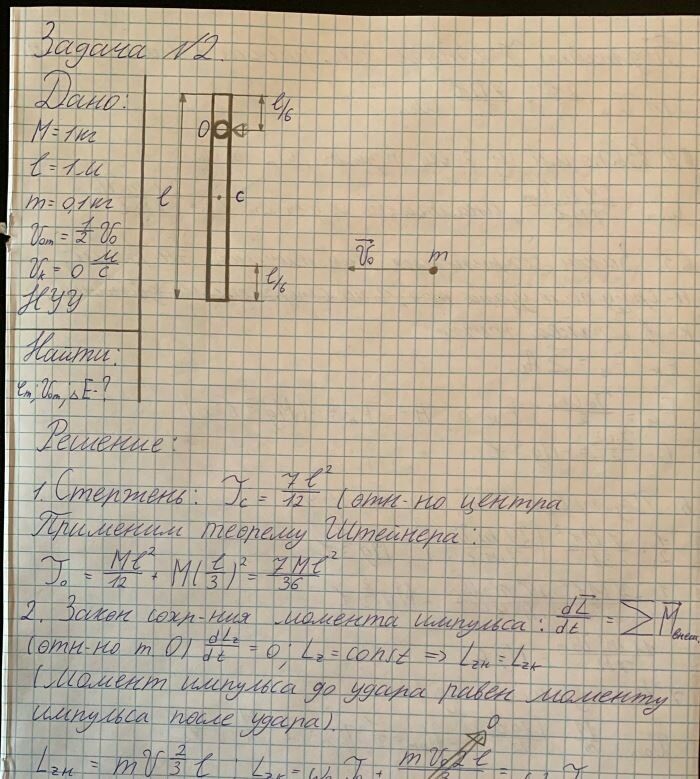 Задача №2.
Дано:
M = 1 кг
l = 1 м
m = 0,1 кг
V₀ₘ = 1/2 V₀
Vₖ = 0 м/с
НУУ
Найти:
V₀ₘ; ΔE - ?
l/6
O
l
C
V⃗₀
m
l/6
Решение:
1. Стержень: J_c = 7l²/12 (отн-но центра
Применим теорему Штейнера:
J₀ = Ml²/12 + M(l/3)² = 7Ml²/36
2. Закон сохр-ния момента импульса: dL⃗/dt = ∑ M⃗внеш.
(отн-но т O) dL_z/dt = 0; L_z = const => L_zн = L_zк
(Момент импульса до удара равен моменту
импульса после удара).
O
L_zн = mV 2/3 l ; L_zк =